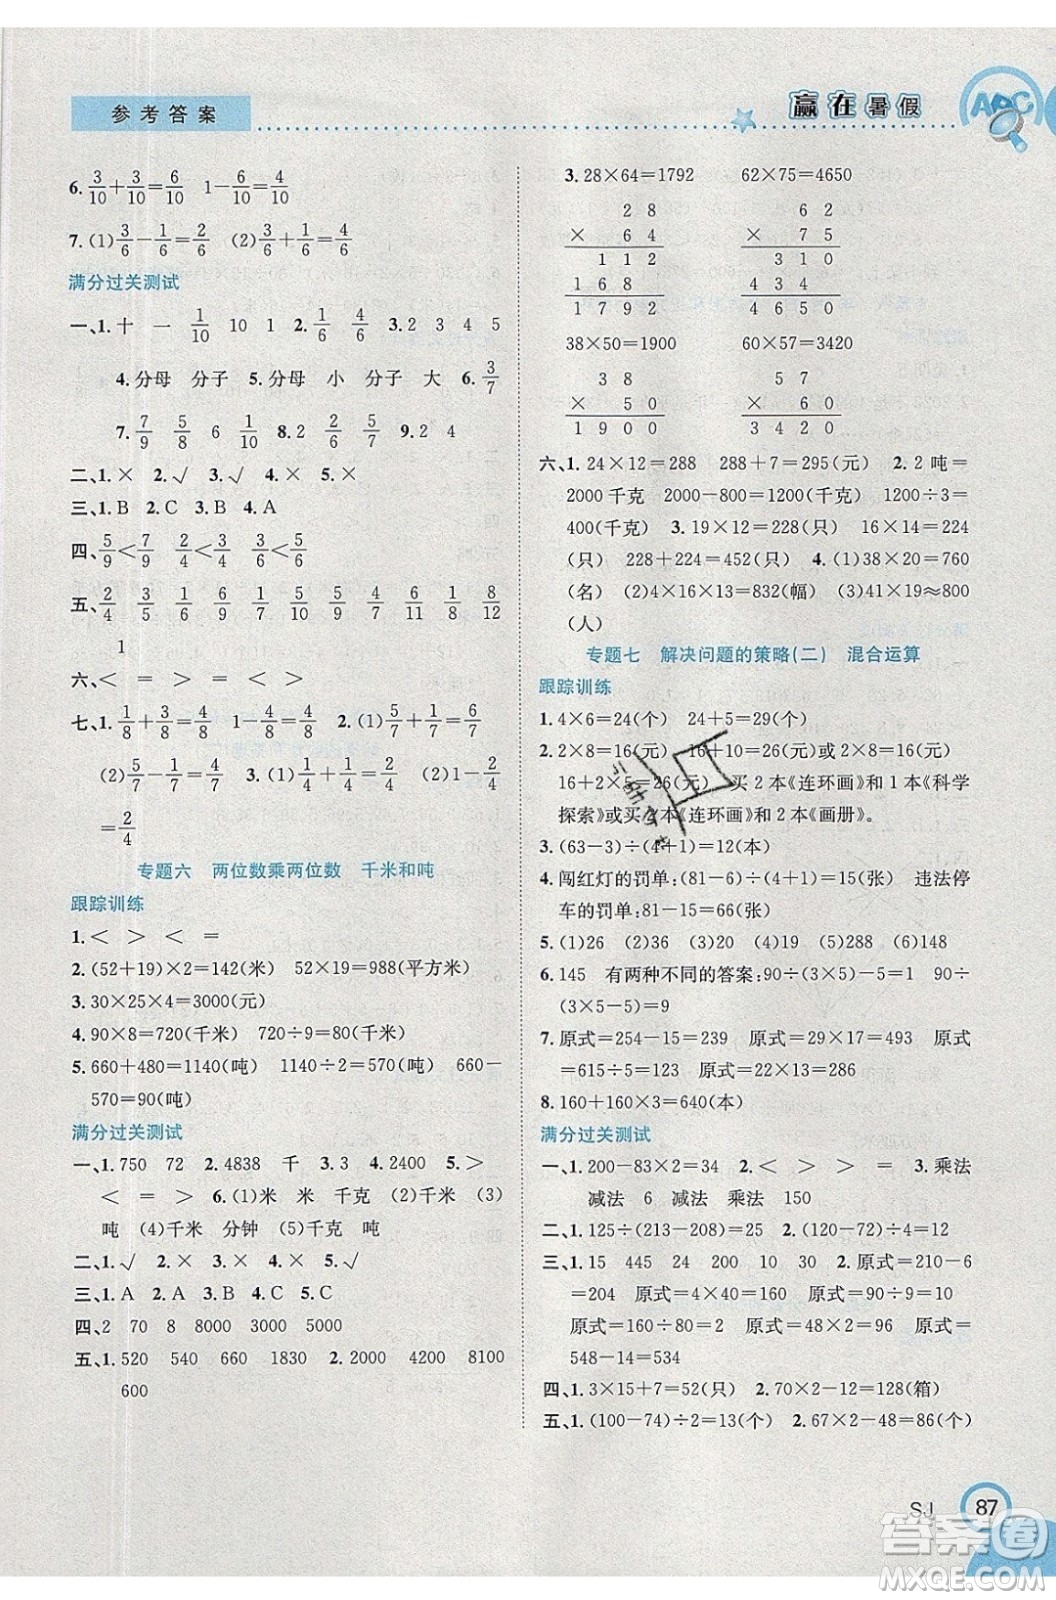 参考答案
赢在暑假
ABC
6. 3/10+3/10=6/10 1-6/10=4/10
7.(1)3/6-1/6=2/6 (2)3/6+1/6=4/6
满分过关测试
一、1.十 一 1/10 10 1 2.1/6 4/6 3.2 3 4 5
4.分母 分子 5.分母 小 分子 大 6.3/7
7.7/9 5/8 6 3/10 8.2 2/6 5/7 9.2 4
二、1.× 2.√ 3.√ 4.× 5.×
三、1.B 2.C 3.B 4.A
四、5/9<7/9 2/4<3/4 3/6<5/6
五、2/4 5/5 7/8 6/9 1/7 5/10 4/7 6/11 1/8 8/12
1
六、< = > < >
七、1/8+3/8=4/8 1-4/8=4/8 2.(1)5/7+1/7=6/7
(2)5/7-1/7=4/7 3.(1)1/4+1/4=2/4 (2)1-2/4
=2/4
专题六 两位数乘两位数 千米和吨
跟踪训练
1.< > < =
2.(52+19)×2=142(米) 52×19=988(平方米)
3.30×25×4=3000(元)
4.90×8=720(千米) 720÷9=80(千米)
5.660+480=1140(吨) 1140÷2=570(吨) 660-
570=90(吨)
满分过关测试
一、1.750 72 2.4838 千 3.4 4.2400 5.>
< = > 6.(1)米 米 千克 (2)千米 (3)
吨 (4)千米 分钟 (5)千克 吨
二、1.√ 2.× 3.× 4.× 5.√
三、1.A 2.A 3.B 4.C 5.C
四、2 70 8 8000 9 9000 5 5000
五、1.520 540 660 1830 2.2000 4200 8100
600
3.28×64=1792 62×75=4650
2 8 6 2
× 6 4 × 7 5
1 1 2 3 1 0
1 6 8 4 3 4
1 7 9 2 4 6 5 0
38×50=1900 60×57=3420
3 8 5 7
× 5 0 × 6 0
1 9 0 0 3 4 2 0
六、1.24×12=288 288+7=295(元) 2.2吨=
2000千克 2000-800=1200(千克) 1200÷3=
400(千克) 3.19×12=228(只) 16×14=224
(只) 228+224=452(只) 4.(1)38×20=760
(名) (2)4×16×13=832(幅) (3)41×19≈800
(人)
专题七 解决问题的策略(二) 混合运算
跟踪训练
1.4×6=24(个) 24+5=29(个)
2.2×8=16(元) 16+10=26(元)或2×8+10=26(元)
16+2×5=26(元) 买2本《连环画》和1本《科学
探索》或买2本《连环画》和2本《画册》。
3.(63-3)÷(4+1)=12(本)
4.闯红灯的罚单:(81-6)÷(4+1)=15(张) 违法停
车的罚单:81-15=66(张)
5.(1)26 (2)36 (3)20 (4)19 (5)26 (6)148
6.145 有两种不同的答案:90÷(3×5)-5=1 90÷
(3×5-5)=9
7.原式=254-15=239 原式=29×17=493 原式
=615÷5=123 原式=77×2÷11=14
8.160+160×3=640(本)
满分过关测试
一、1.200-83×2=34 2.< > > = 3.乘法
减法 6 减法 乘法 150
二、1.125÷(213-208)=25 2.(120-72)÷4=12
三、1.15 445 24 200 0 27 2.原式=210-6
=204 原式=4×40=160 原式=90÷9=10
原式=160÷80=2 原式=12×8=96 原式=
548-14=534
四、1.3×15+7=52(只) 2.70×2-12=128(箱)
五、1.(100-74)÷2=13 2.67×2-48=86(个)
SJ 87
答案圈
MXQE.COM